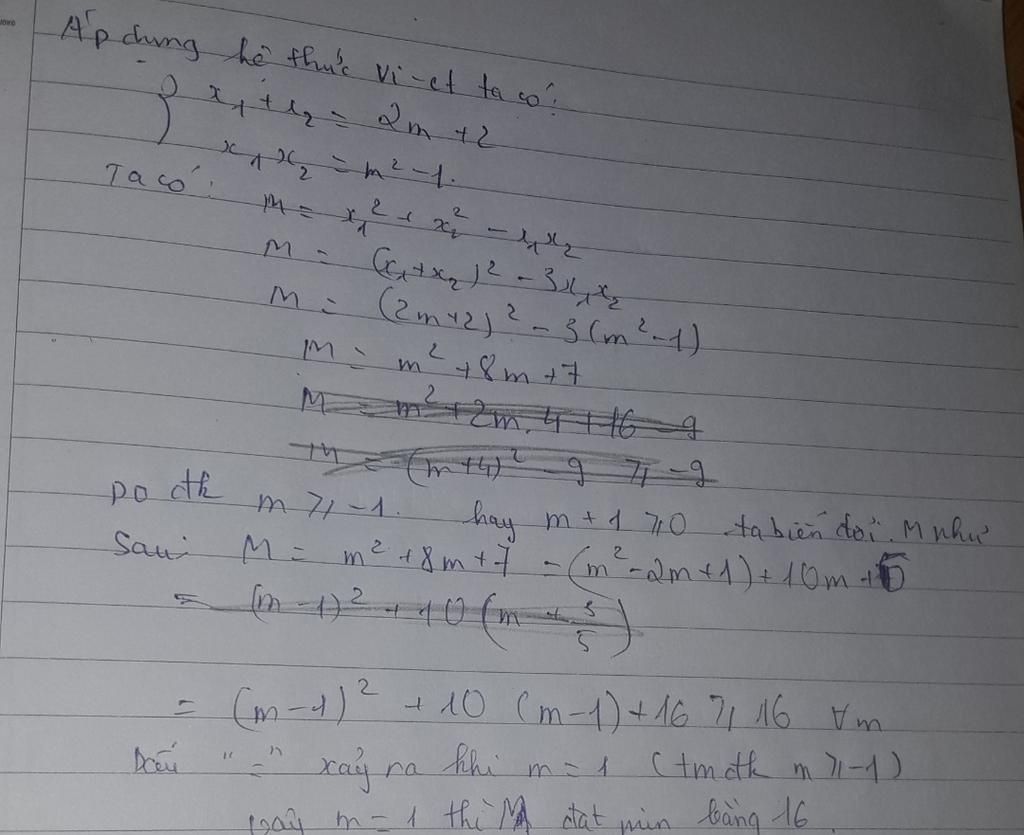 Áp dụng hệ thức vi-et ta có:
{ x₁ + x₂ = 2m + 2
x₁x₂ = m² - 1.
Ta có: M = x₁² + x₂² - x₁x₂
M = (x₁+x₂)² - 3x₁x₂
M = (2m+2)² - 3(m²-1)
M = m² + 8m + 7
M = m² + 2m.4 + 16 - 9
M = (m+4)² - 9 ⩾ -9
Do đk m ⩾ -1. hay m + 1 ⩾ 0 ta biến đổi M như
Sau: M = m² + 8m + 7 = (m² - 2m + 1) + 10m + 6
= (m-1)² + 10 (m + 3/5)
= (m-1)² + 10 (m-1) + 16 ⩾ 16 ∀m
Dấu "=" xảy ra khi m = 1 (tm đk m ⩾ -1)
Vậy m = 1 thì M đạt min bằng 16.